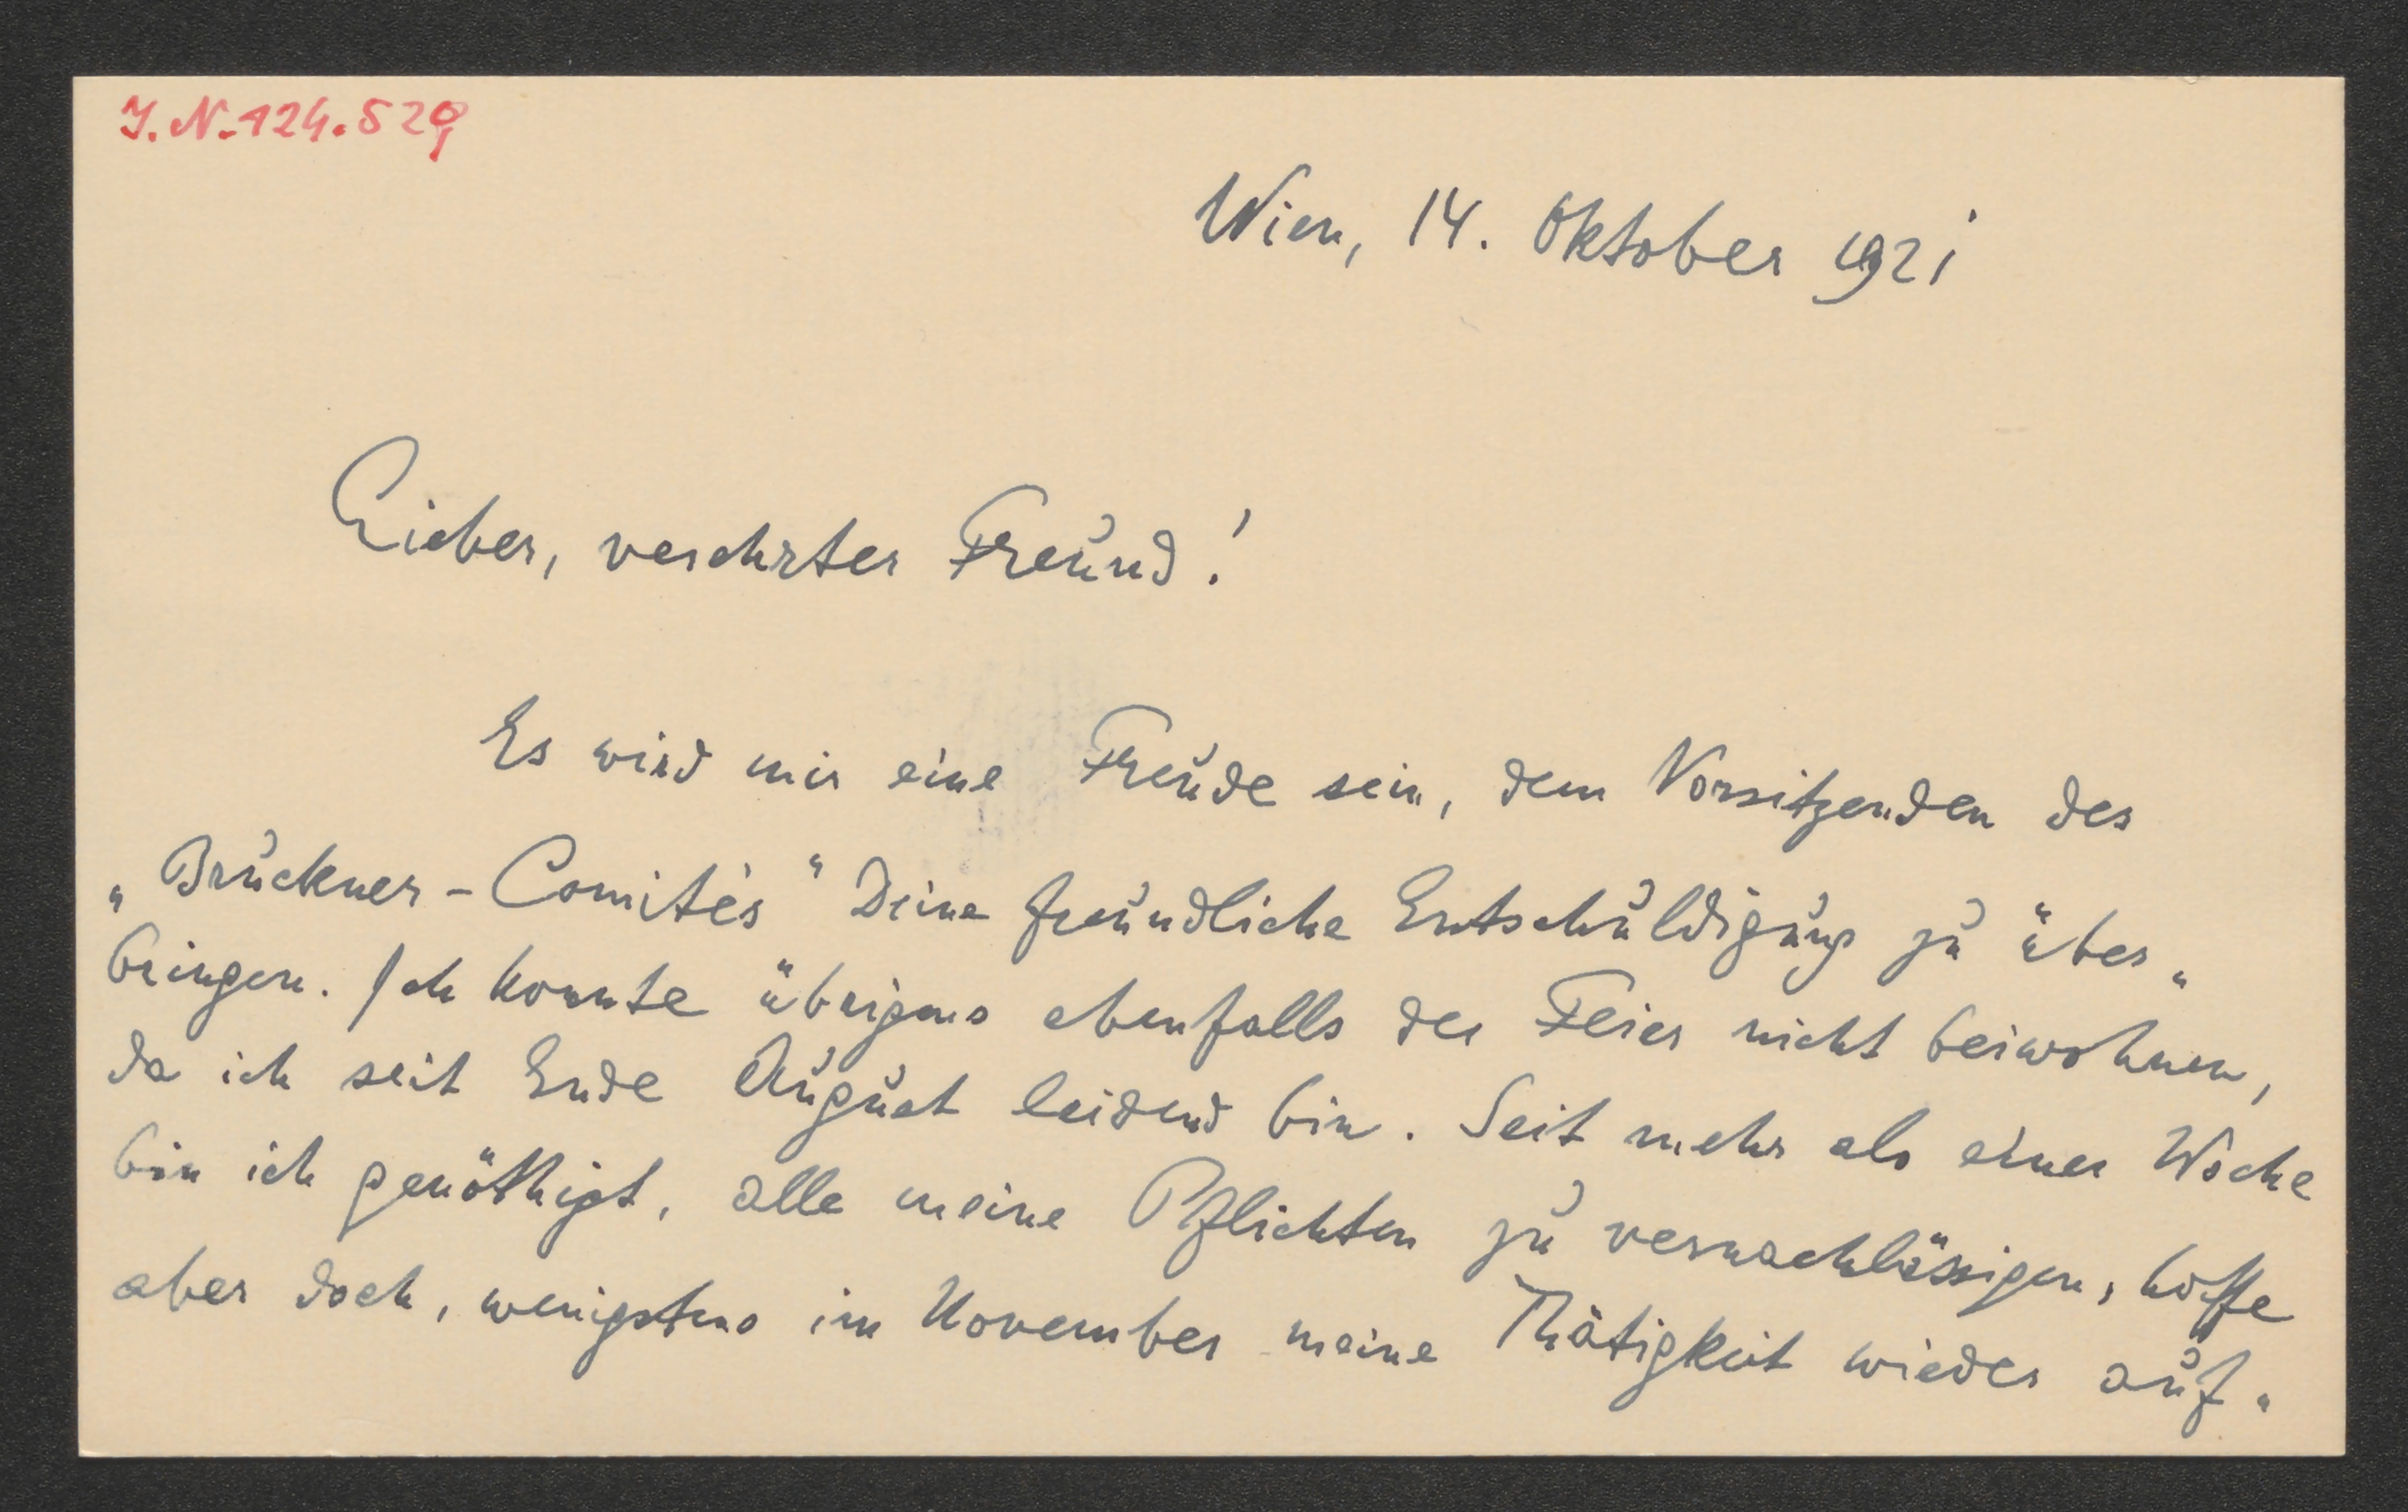 I.N. 124.529
Wien, 14. Oktober 1921
Lieber, verehrter Freund!
Es wird mir eine Freude sein, dem Vorsitzenden des
„Bruckner-Comités" Deine freundliche Entschuldigung zu über„
bringen. Ich konnte übrigens ebenfalls der Feier nicht beiwohnen,
da ich seit Ende August leidend bin. Seit mehr als einer Woche
bin ich genöthigt, alle meine Pflichten zu vernachlässigen, hoffe
aber doch, wenigstens im November meine Thätigkeit wieder auf„